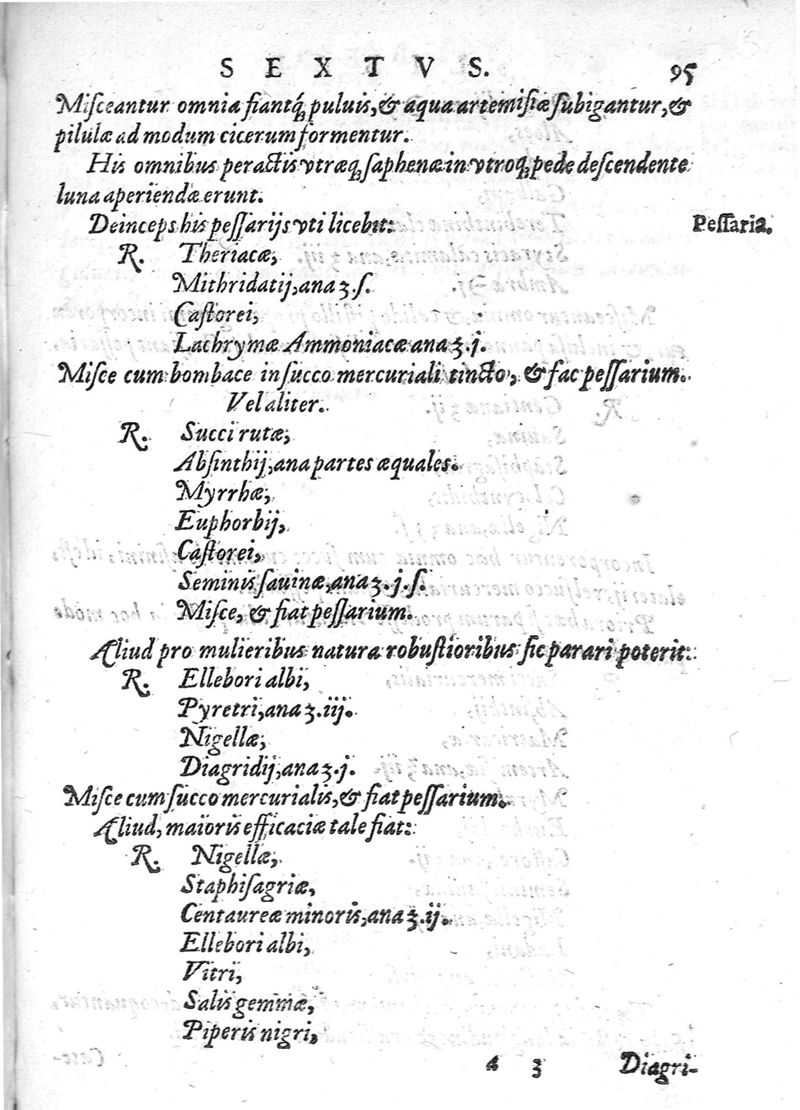 SEXTVS. 95
Misceantur omnia fiantq́; puluis, & aqua artemisiæ subigantur, &
pilulæ ad modum cicerum formentur.
His omnibus peractis vtræq; saphenæ in vtroq; pede descendente
luna aperiendæ erunt.
Deinceps his pessarijs vti licebit: Pessaria.
R. Theriacæ,
Mithridatij, ana ʒ. s.
Castorei,
Lachrymæ Ammoniacæ ana ʒ. j.
Misce cum bombace in succo mercuriali tincto, & fac pessarium.
Vel aliter.
R. Succi rutæ,
Absinthij, ana partes æquales.
Myrrhæ,
Euphorbij,
Castorei,
Seminis sauinæ, ana ʒ. j. s.
Misce, & fiat pessarium.
Aliud pro mulieribus natura robustioribus sic parari poterit:
R. Ellebori albi,
Pyretri, ana ʒ. iij.
Nigellæ,
Diagridij, ana ʒ. j.
Misce cum succo mercurialis, & fiat pessarium.
Aliud, maioris efficaciæ tale fiat:
R. Nigellæ,
Staphisagriæ,
Centaureæ minoris, ana ʒ. ij.
Ellebori albi,
Vitri,
Salis gemmæ,
Piperis nigri,
A 3 Diagri-